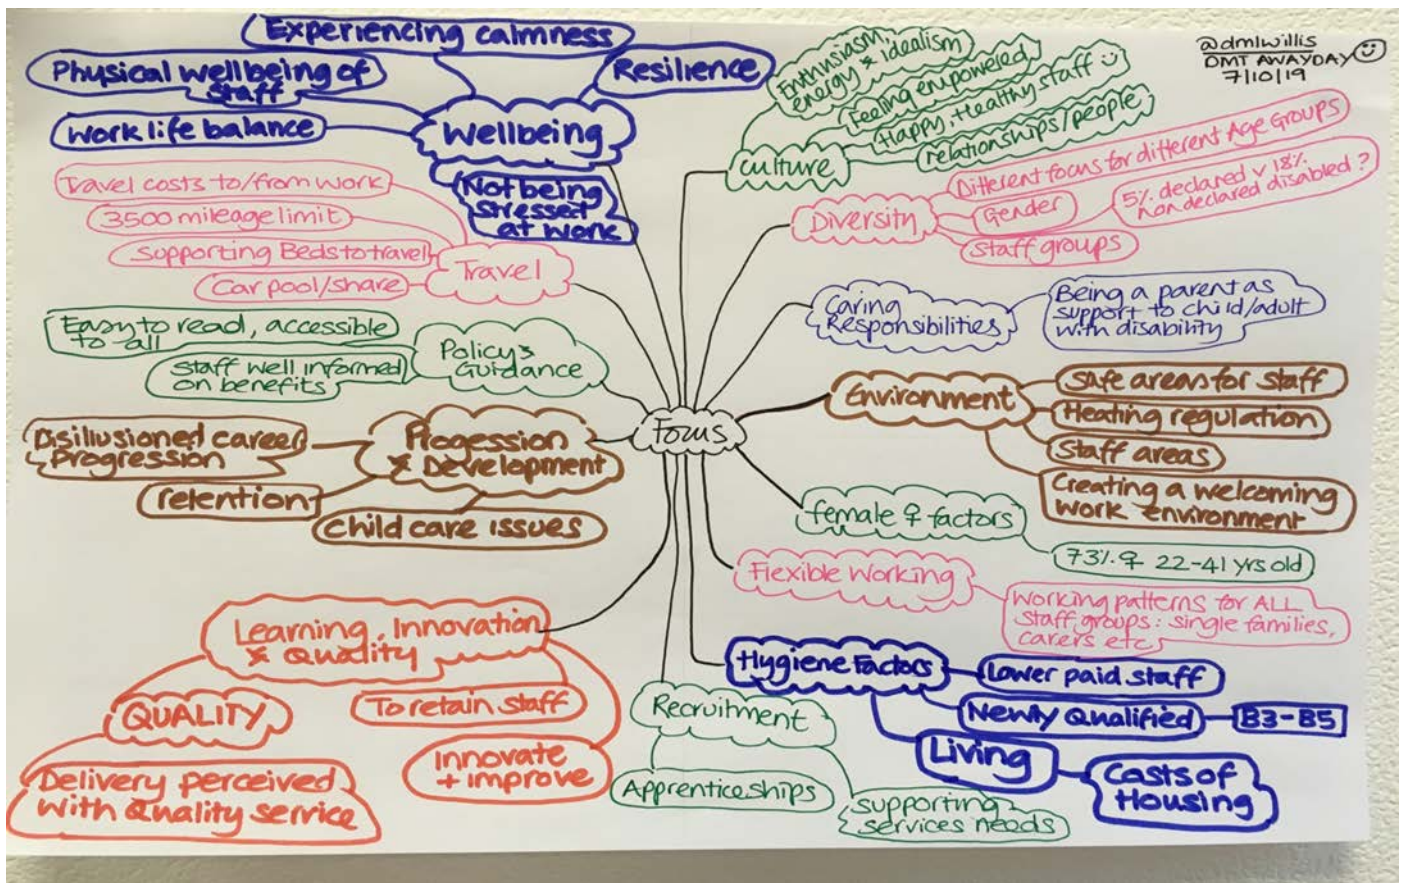 @dmlwillis
DMT AWAYDAY
7/10/19
Focus
Experiencing calmness
Physical wellbeing of
Staff
Resilience
Work life balance
Wellbeing
Not being
stressed
at work
Travel costs to/from work
3500 mileage limit
Supporting Beds to travel
Car pool/share
Travel
Easy to read, accessible
to all
Staff well informed
on benefits
Policy &
Guidance
Disillusioned career
Progression
retention
Child care issues
Progession
& Development
Learning, Innovation
& Quality
QUALITY
Delivery perceived
With Quality service
To retain staff
Innovate
+ improve
Culture
Enthusiasm,
energy & idealism
Feeling empowered
Happy, Healthy staff
relationships/people
Diversity
Different focus for different Age Groups
Gender
5% declared v 18%
non declared disabled ?
Staff groups
Caring
Responsibilities
Being a parent as
support to child/adult
with disability
Environment
Safe areas for staff
Heating regulation
Staff areas
Creating a welcoming
work environment
female ♀ factors
73% ♀ 22-41 yrs old
Flexible Working
Working patterns for ALL
Staff groups: single families,
carers etc
Hygiene Factors
Lower paid staff
Newly Qualified
B3-B5
Living
Costs of
Housing
Recruitment
Apprenticeships
supporting
services needs